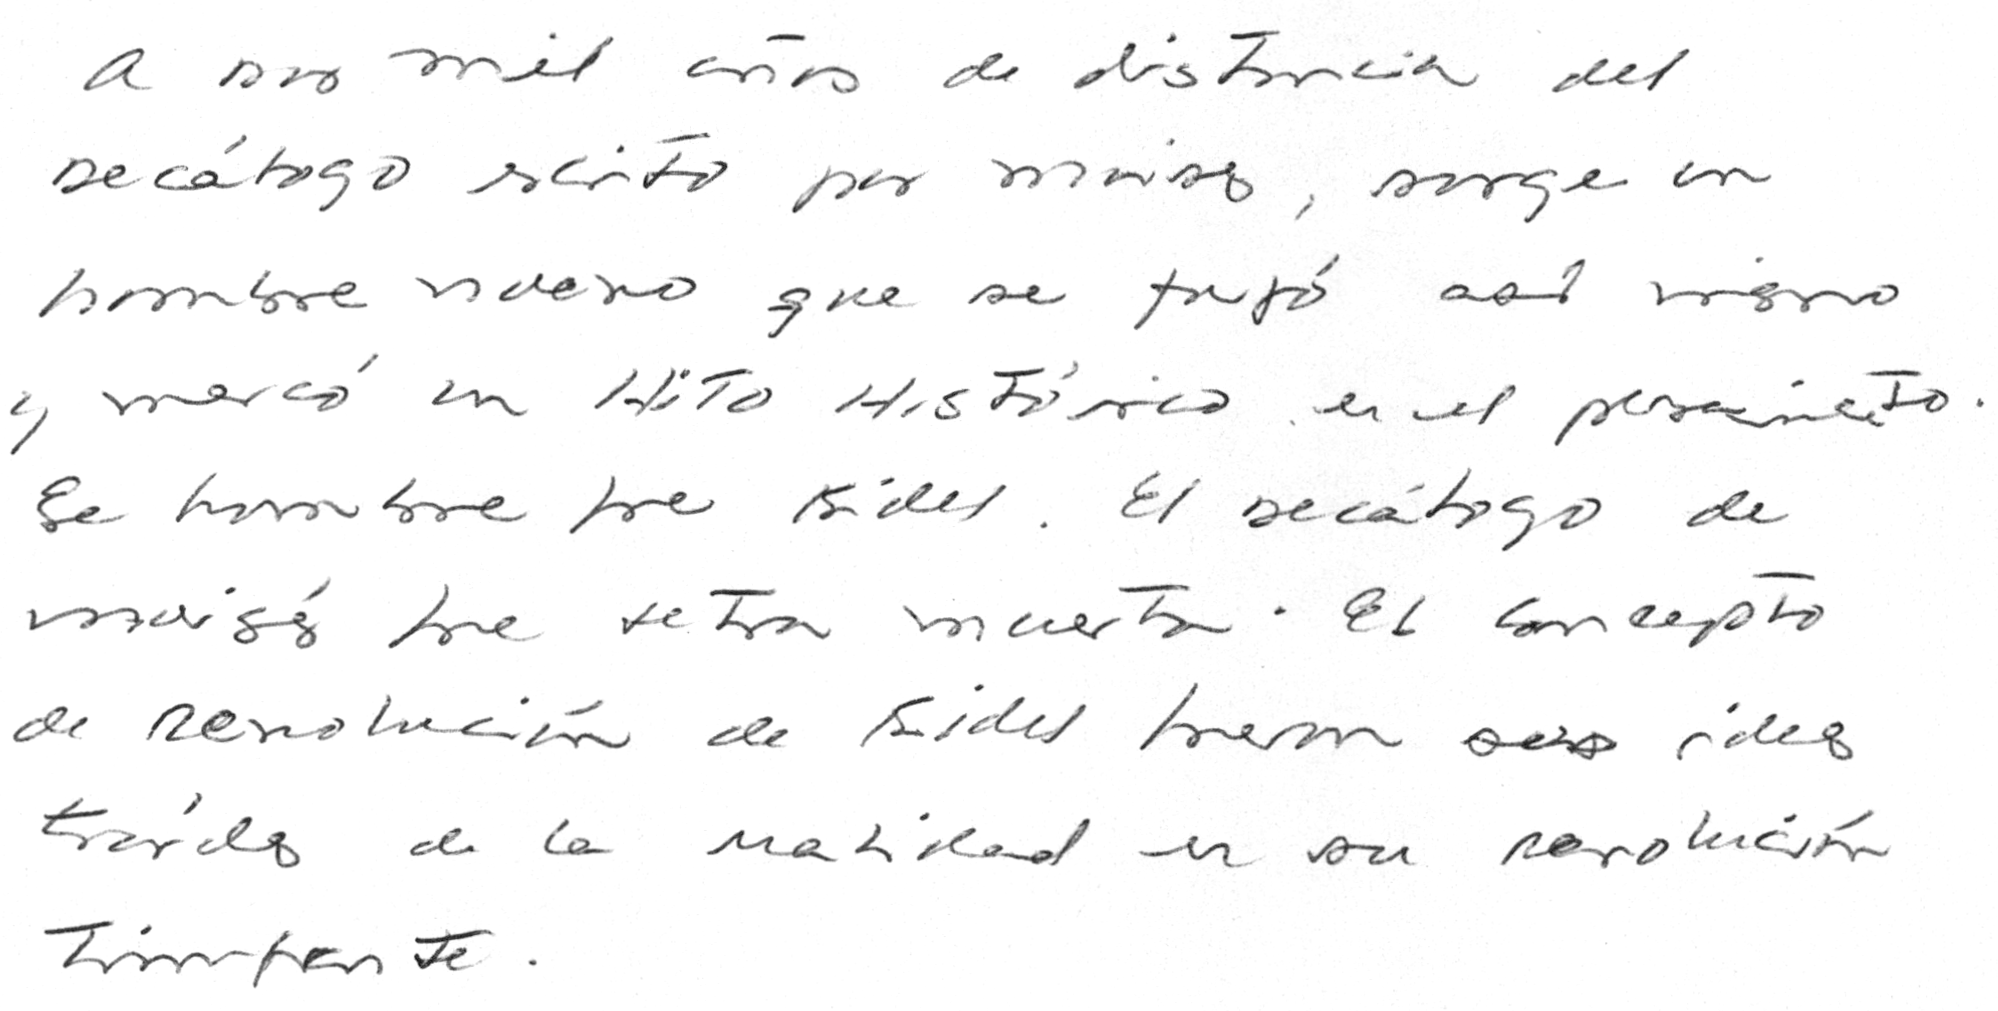 A dos mil años de distancia del
decálogo escrito por moises, surge un
hombre nuevo que se forjó así mismo
y marcó un Hito Histórico en el pensamiento.
Ese hombre fue Fidel. El decálogo de
moisés fue letra muerta. El concepto
de revolución de Fidel fueron ideas
traídas de la realidad en su revolución
triunfante.